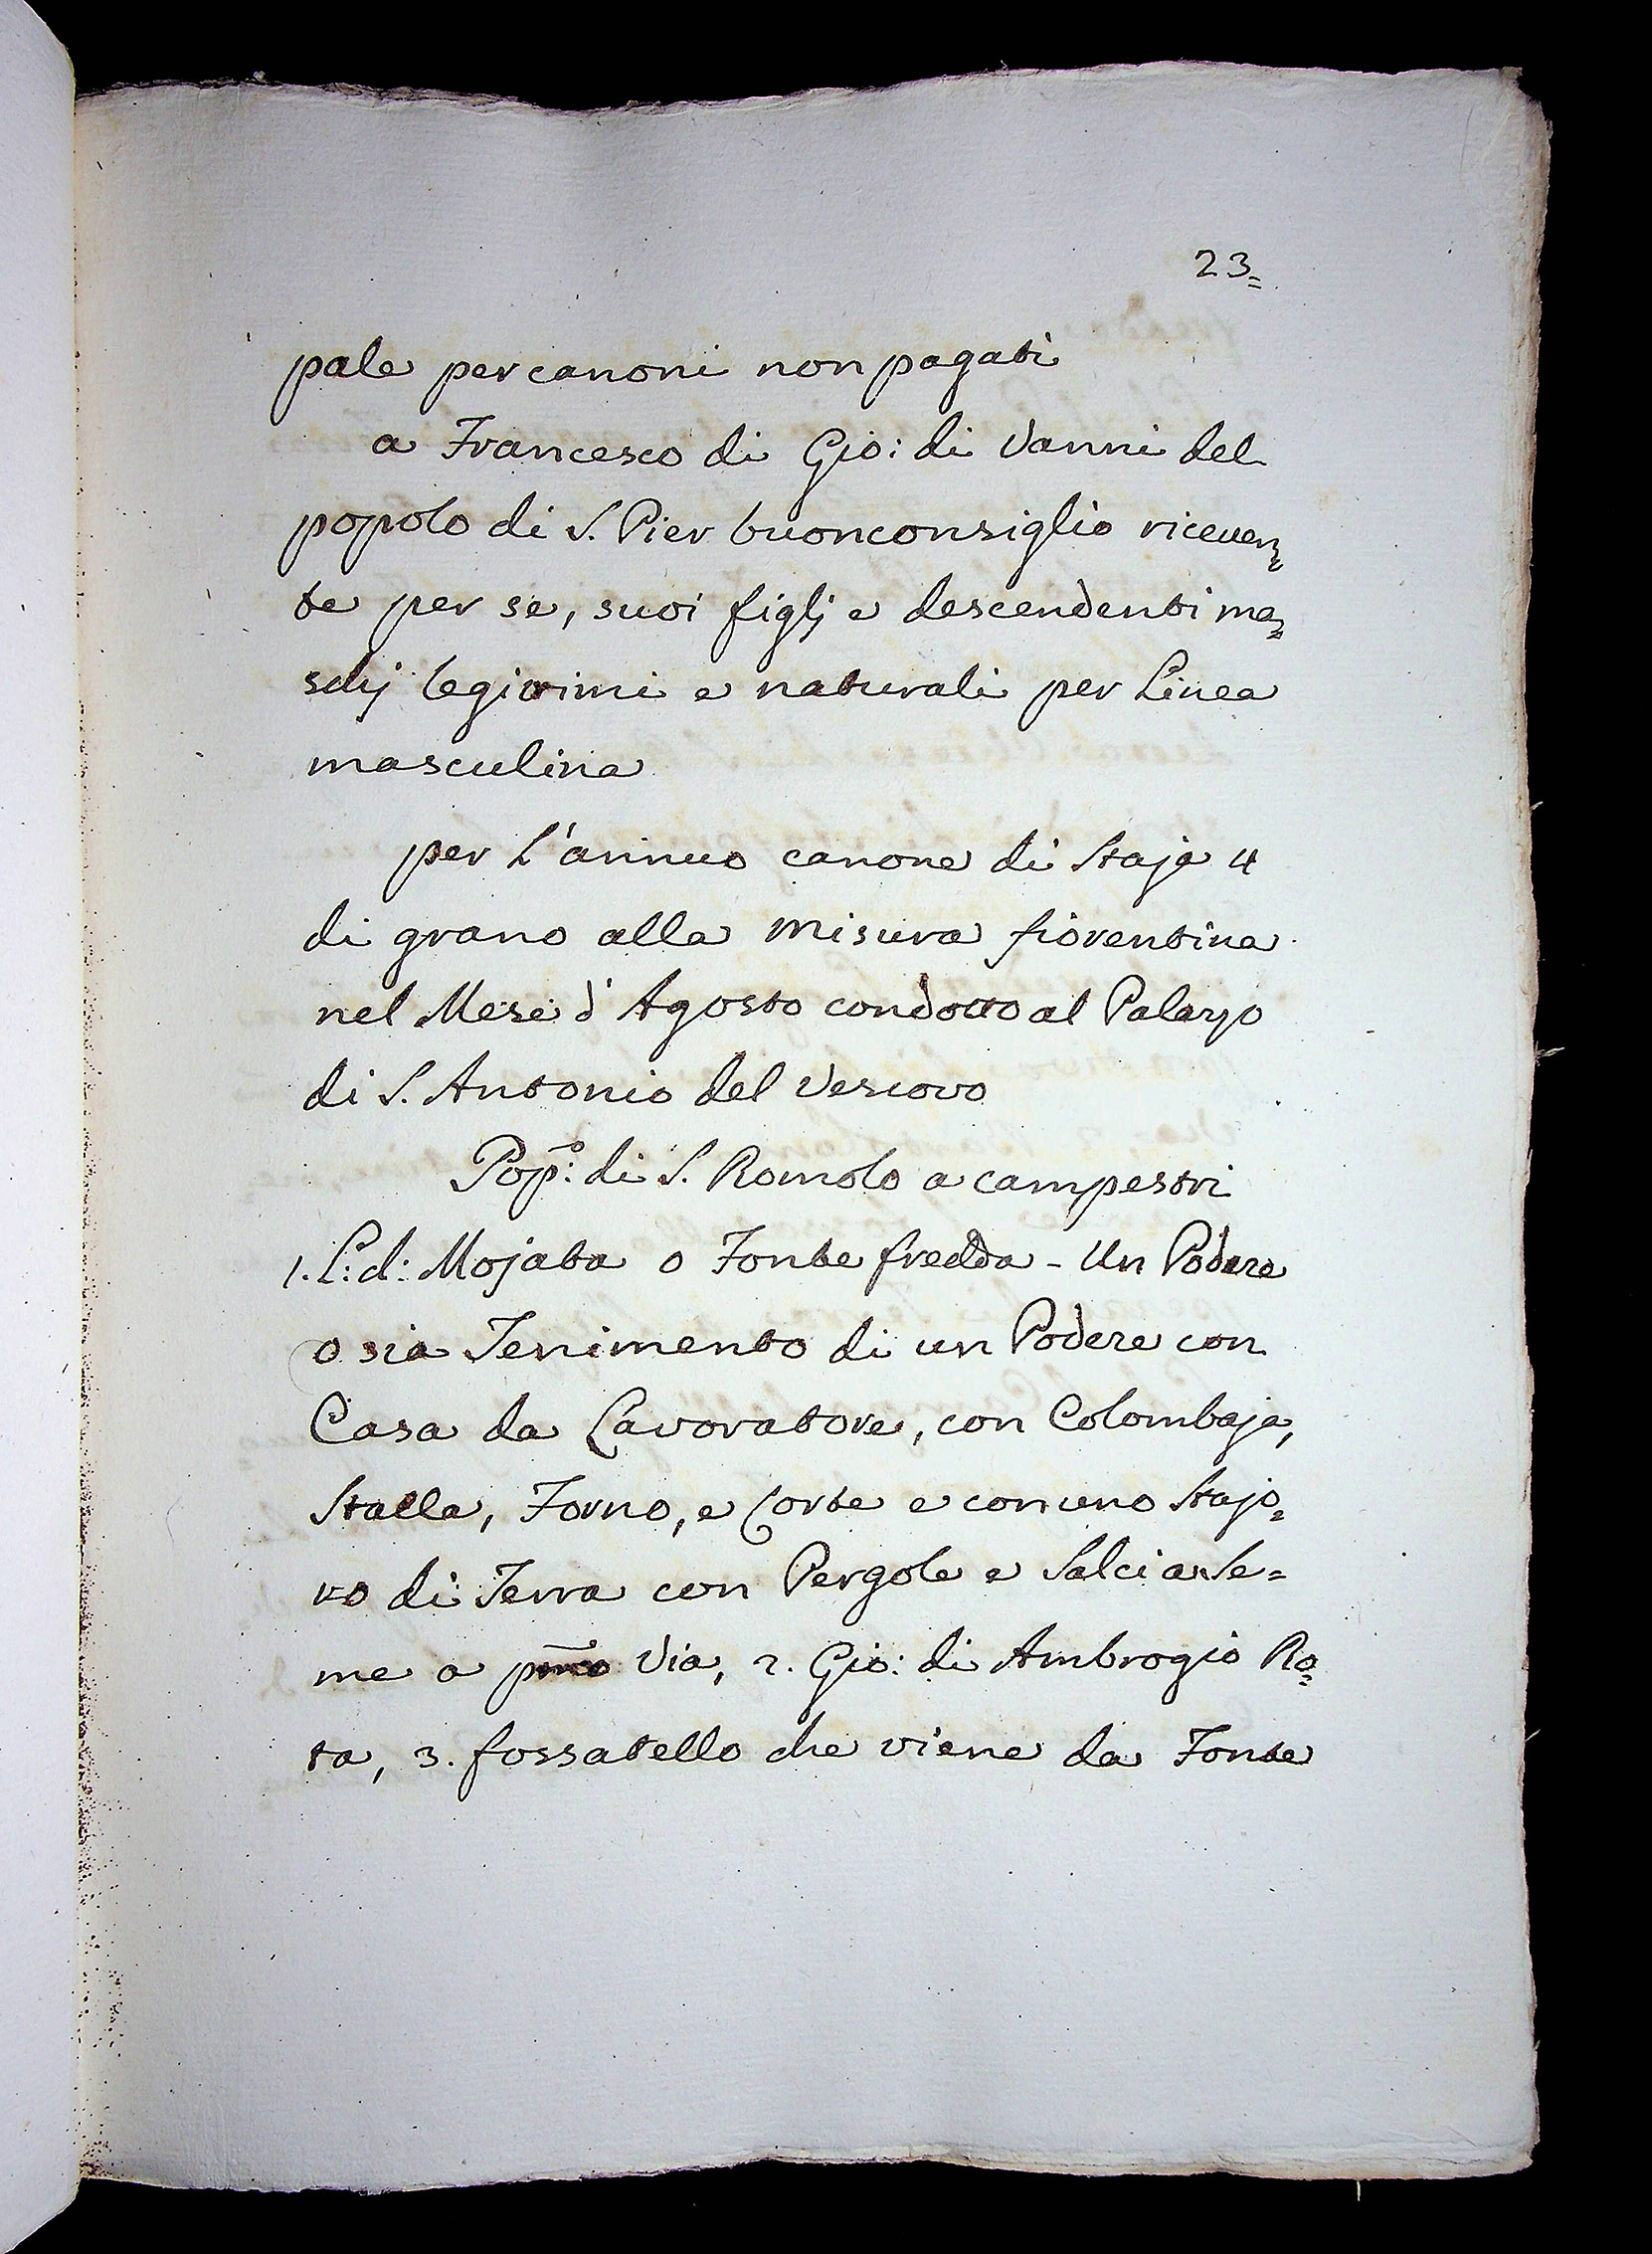 23=
pale per canoni non pagati
a Francesco di Gio: di Vanni del
popolo di S. Pier buonconsiglio riceven=
te per se, suoi figlj e descendenti ma=
schj legittimi e naturali per Linea
masculina
per L'annuo canone di Staja 4
di grano alla misura fiorentina
nel Mese d'Agosto condotto al Palazzo
di S. Antonio del Vescovo
Pop.º: di S. Romolo a campestri
1. L: d: Mojata o Fonte fredda - Un Podere
o sia Tenimento di un Podere con
Casa da Lavoratore, con Colombaja,
Stalla, Forno, e Corte e con uno Stajo=
ro di Terra con Pergole e Salci asse=
me a pmo Via, 2. Gio: di Ambrogio Ro=
ta, 3. fossatello che viene da Fonte